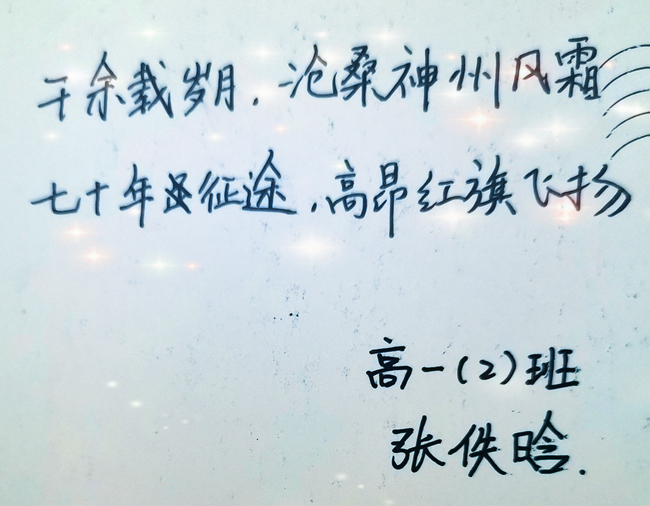 千余载岁月,沧桑神州风霜
七十年征途,高昂红旗飞扬
高一(2)班
张佚晗.